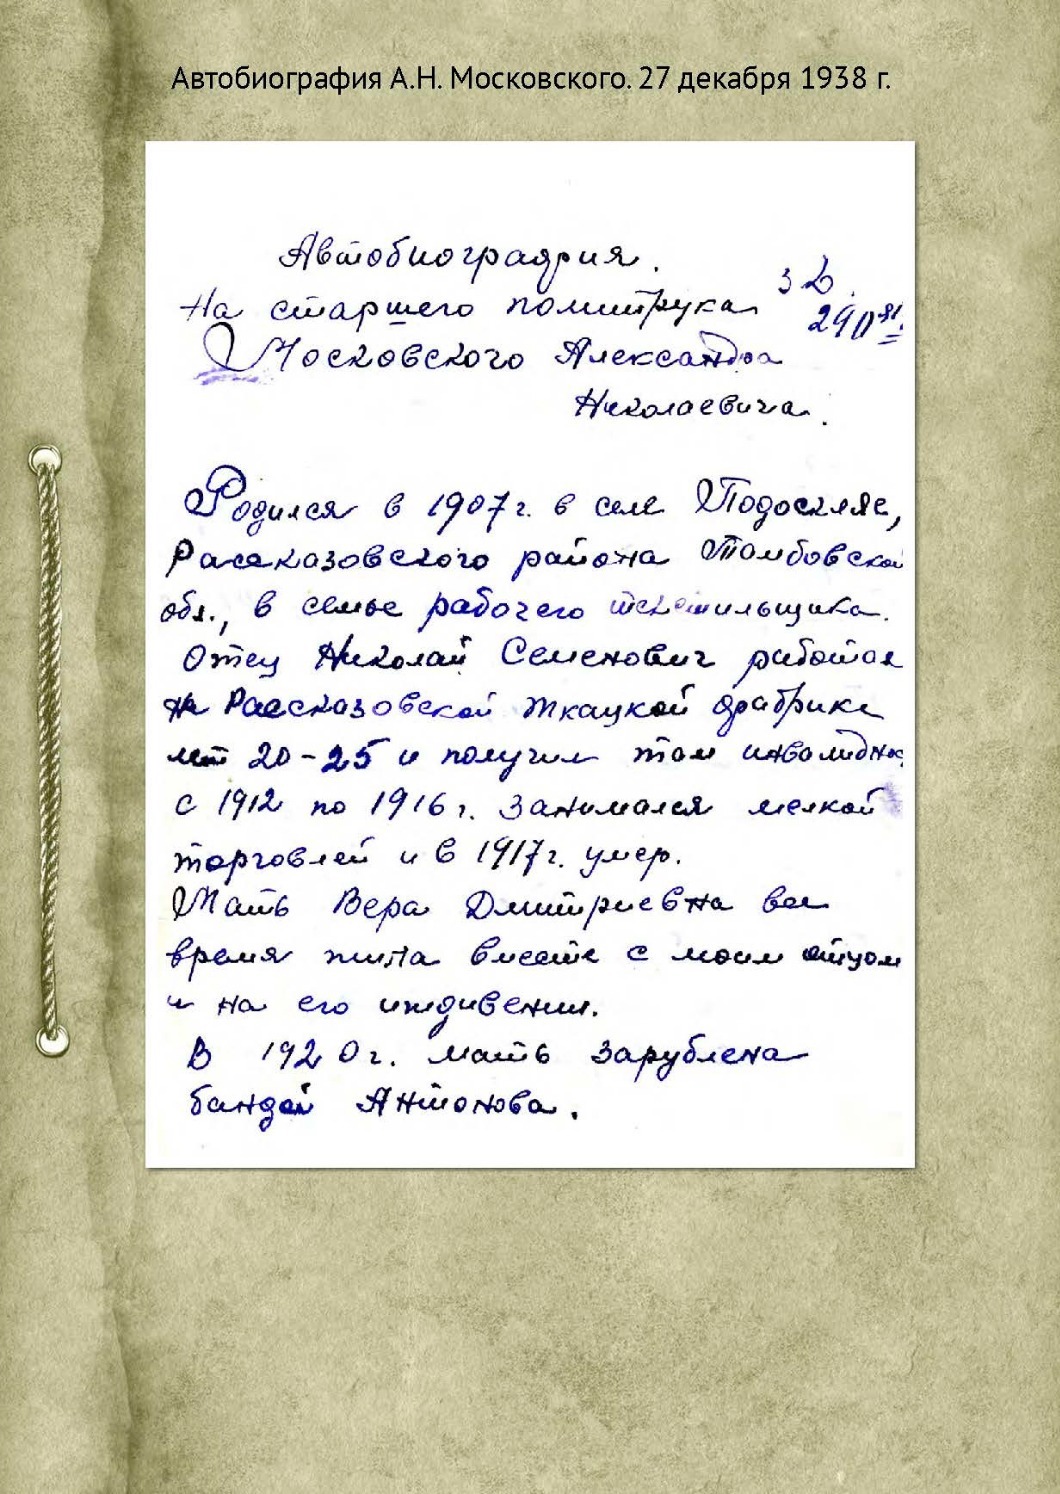 Автобиография А.Н. Московского. 27 декабря 1938 г.
Автобиография.
На старшего политрука
Московского Александра
Николаевича.
Родился в 1907 г. в селе Подоскляе,
Рассказовского района Тамбовской
обл., в семье рабочего текстильщика.
Отец Николай Семенович работал
на Рассказовской ткацкой фабрике
лет 20-25 и получил там инвалиднос
с 1912 по 1916 г. занимался мелкой
торговлей и в 1917 г. умер.
Мать Вера Дмитриевна все
время жила вместе с моим отцом
и на его иждивении.
В 1920 г. мать зарублена
бандой Антонова.